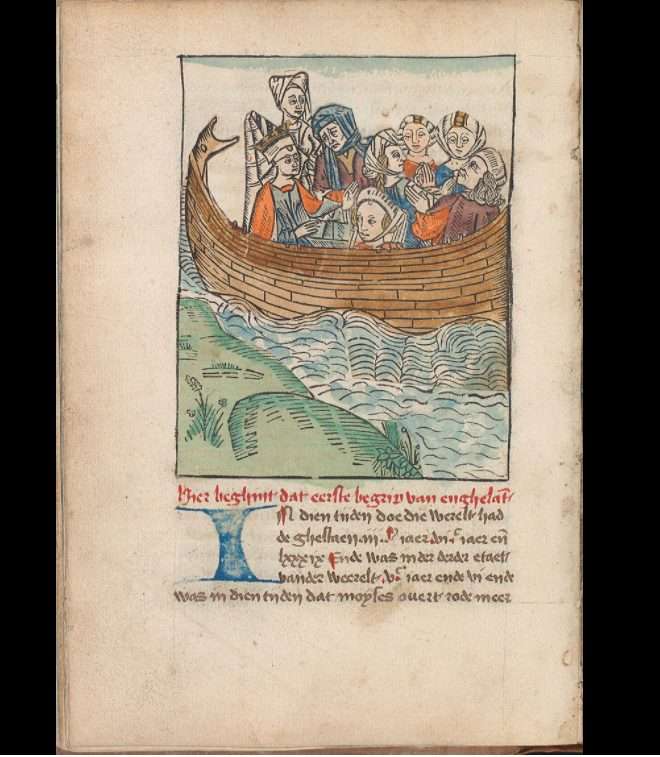 Hier beghint dat eerste begrip van enghelāt
IN dien tijden doe die werelt had
de ghestaen .iii. M iaer .vi.c iaer eñ
lxxxix Ende was in der derder etaet
vander weerelt .v.c iaer ende vi ende
was in dien tijden dat moyses ouer t rode meer